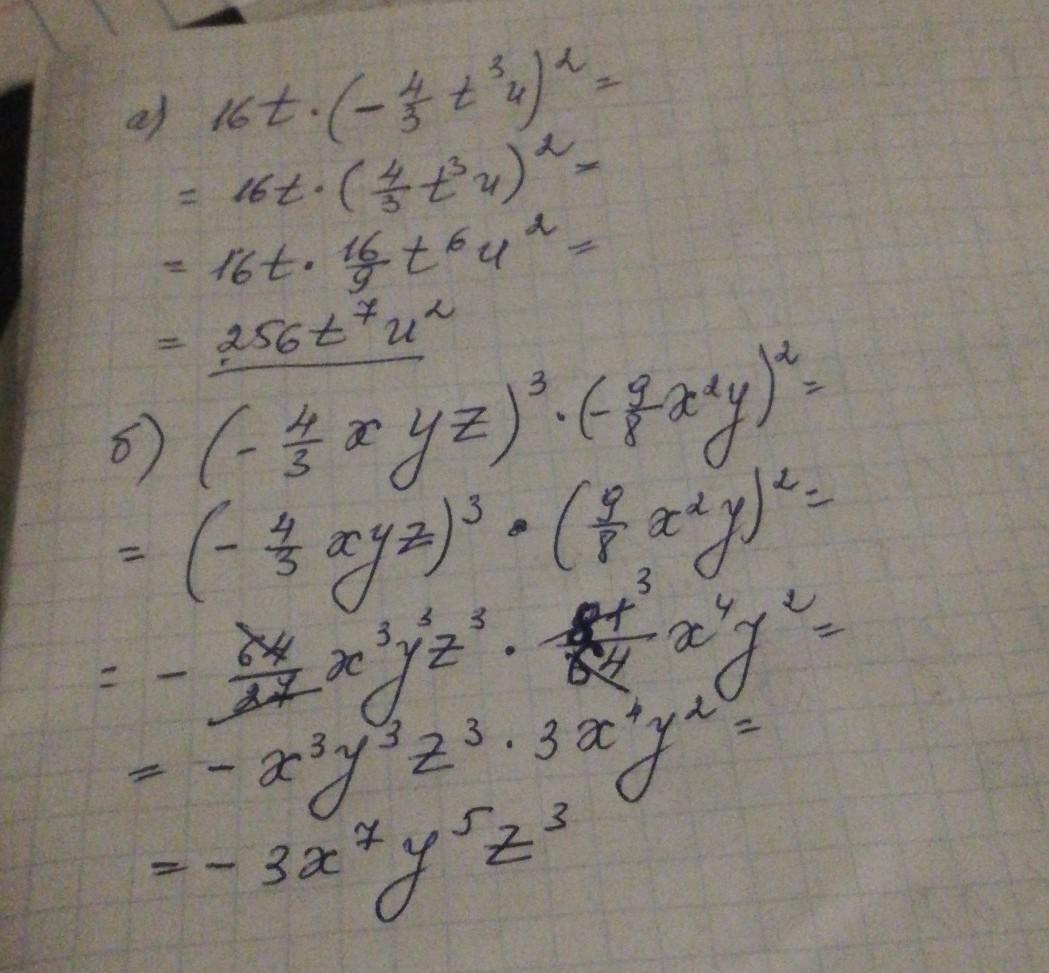 а) 16t · (- 4/3 t³u)² =
= 16t · (4/3 t³u)² =
= 16t · 16/9 t⁶u² =
= 256t⁷u²
б) (- 4/3 xyz)³ · (- 9/8 x²y)² =
= (- 4/3 xyz)³ · (9/8 x²y)² =
= - 64/27 x³y³z³ · 81³/64 x⁴y² =
= - x³y³z³ · 3x⁴y² =
= - 3x⁷y⁵z³